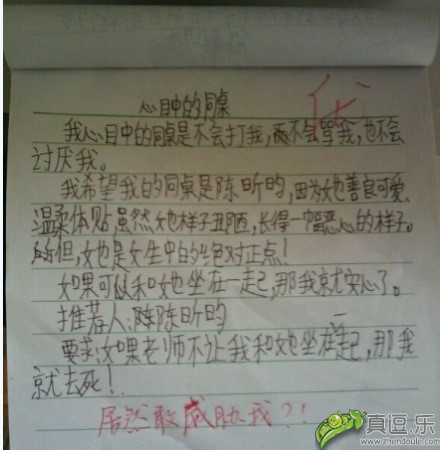 心目中的同桌
我心目中的同桌是不会打我,不会骂我,也不会
讨厌我。
我希望我的同桌是陈昕昀,因为她善良可爱、
温柔体贴,虽然她样子丑陋,长得一幅恶心的样子。
但,她是女生中的绝对正点!
如果可以和她坐在一起,那我就安心了。
推荐人:陈昕昀
要求:如果老师不让我和她坐在一起,那我
就去死!
居然敢威胁我?!
真逗.乐
www.zhendoule.com